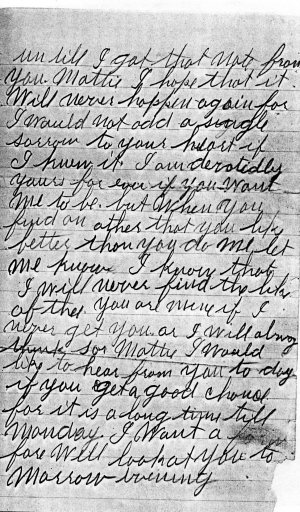 un till I got that note from
you Mattie I hope that it
Will never hoppen again for
I would not add a single
sorrow to your heart if
I knew it. I am devotedly
yours for ever if you Want
me to be. but When you
find an other that you like
better than you do me let
me know I know that
I will never find the like
of the. you are mine if I
never get you or I will alway
think so. Mattie I would
like to hear from you to day
if you get a good chance
for it is a long time till
Monday. I Want a
fare Well look at you to
Morrow evening